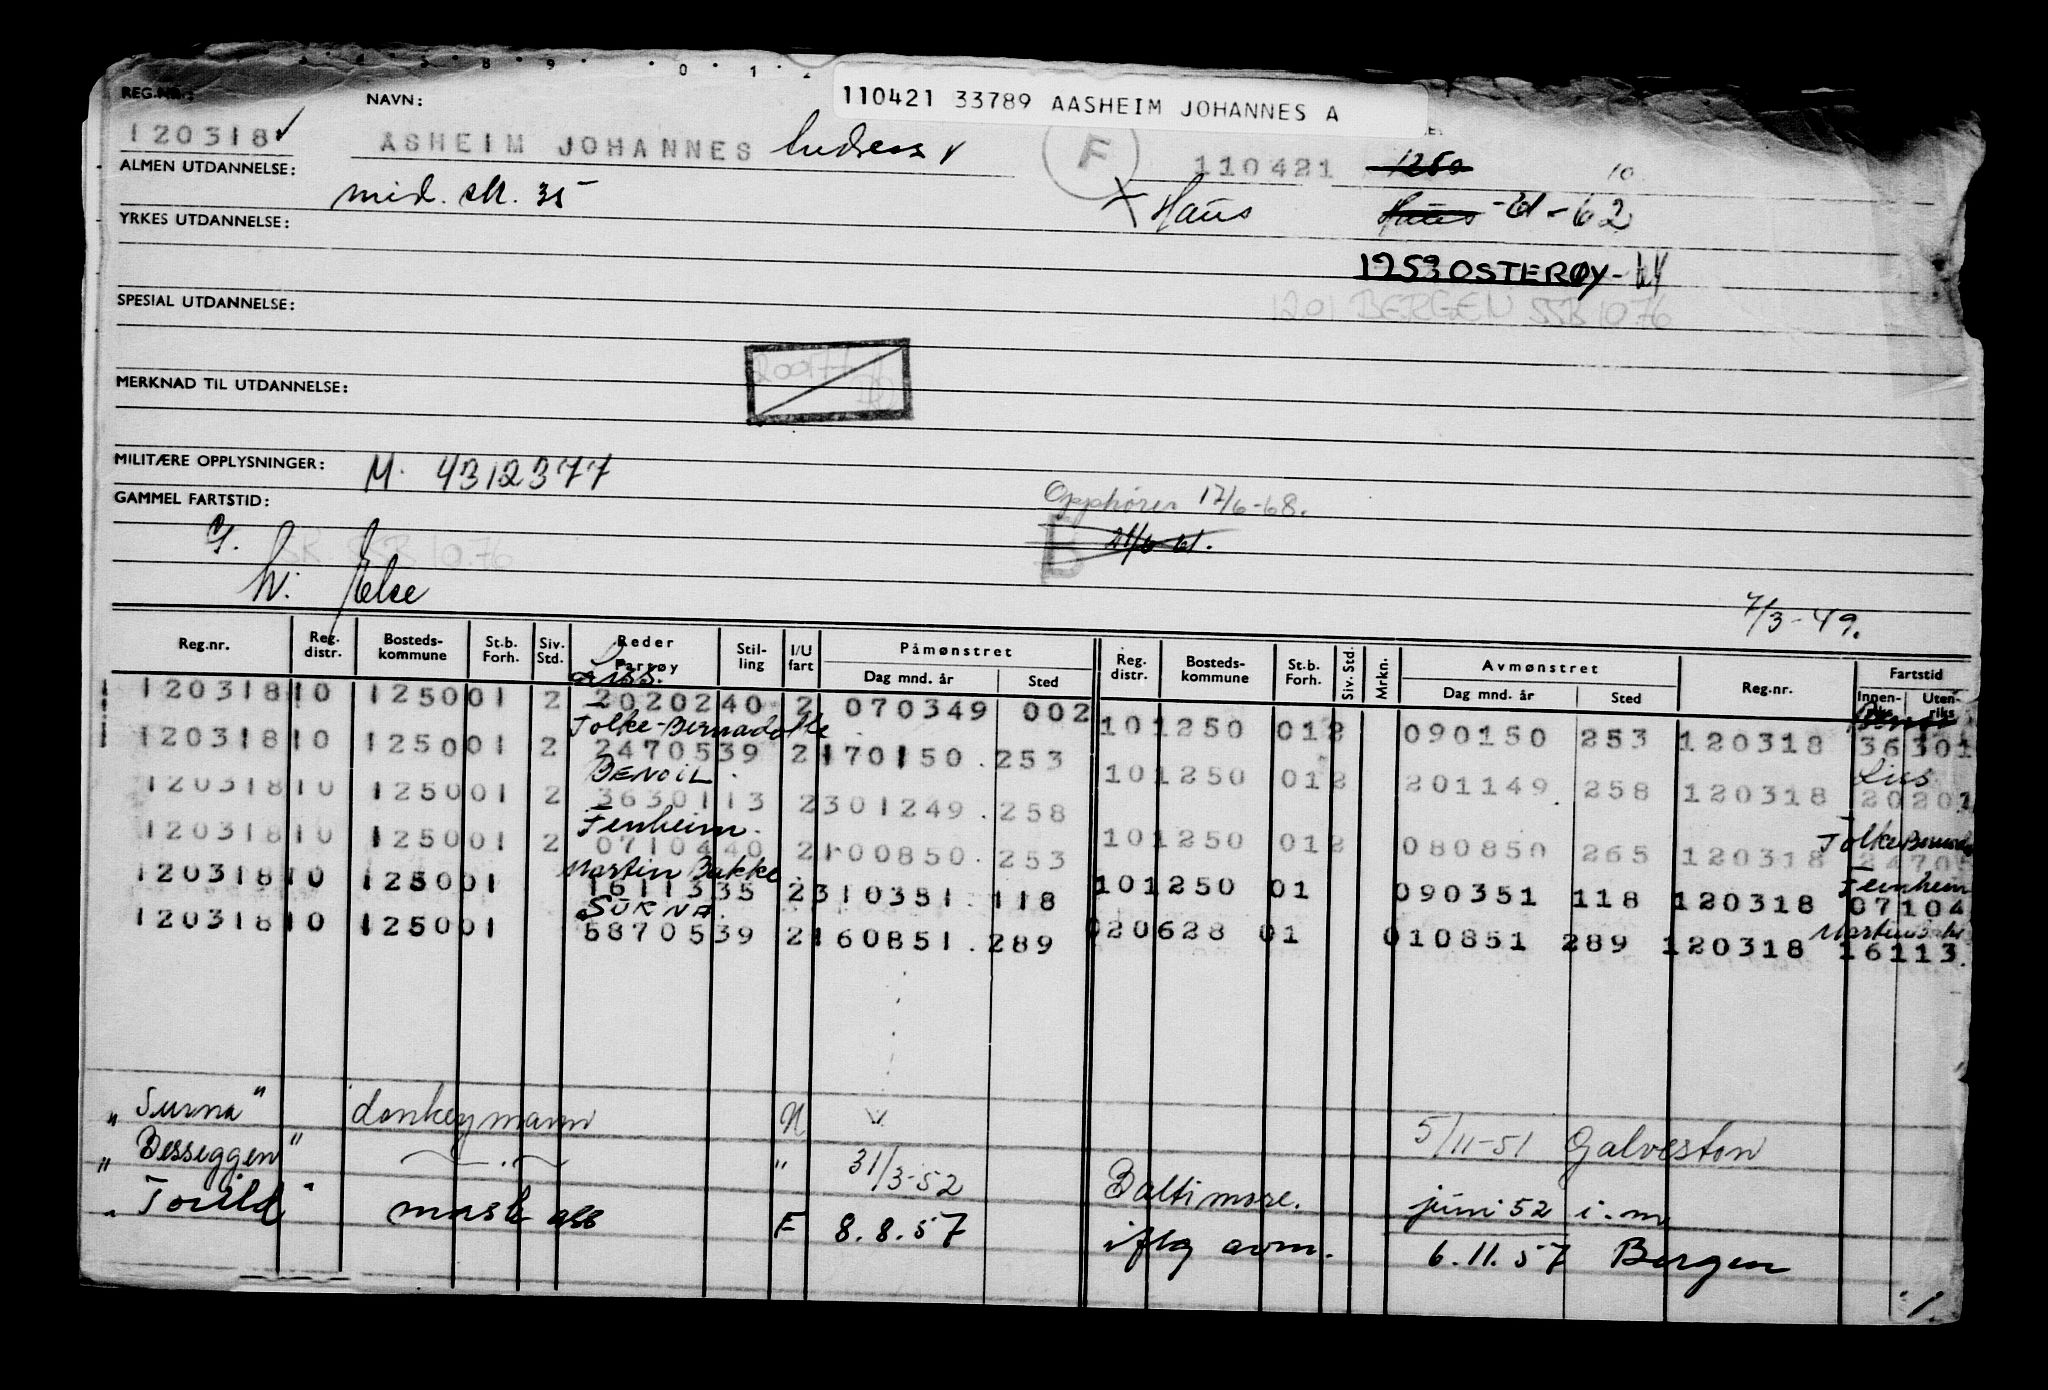 110421 33789 AASHEIM JOHANNES A
REG.NR.: NAVN:
120318 ✓ ASHEIM JOHANNES Andreas v F 110421 1250 10
ALMEN UTDANNELSE: mid. sk. 35 X Haus Haus -61-62
YRKES UTDANNELSE:
1253 OSTERØY-64
SPESIAL UTDANNELSE: 1201 BERGEN SSB 10.76
MERKNAD TIL UTDANNELSE:
MILITÆRE OPPLYSNINGER: M. 4312377
GAMMEL FARTSTID: Opphører 17/6-68.
g. SK. SSB 10.76 B 21/6 61.
h. Else
7/3-49.
Reg.nr. Reg. distr. Bosteds-kommune St.b. Forh. Siv. Std. Reder Fartøy Stil-ling I/U fart Påmønstret Dag mnd. år Sted Reg. distr. Bosteds-kommune St.b. Forh. Siv. Std. Mrkn. Avmønstret Dag mnd. år Sted Reg.nr. Fartstid Innen-riks Uten-riks
Liss.
120318 10 1250 01 2 2020240 2 070349 002 10 1250 01 2 090150 253 120318 36301
Folke-Bernadotte Liss
120318 10 1250 01 2 2470539 2 170150 253 10 1250 01 2 201149 258 120318 20202
BENOIL
120318 10 1250 01 2 3630113 2 301249 258
Fenheim. Folke Bernado
120318 10 1250 01 2 0710440 2 100850 253 10 1250 01 2 080850 265 120318 2470
Martin Bakke Fenheim
120318 10 1250 01 1611335 2 310351 118 10 1250 01 090351 118 120318 07104
SURNA. Martin Bakke
120318 10 1250 01 5870539 2 160851 289 020628 01 010851 289 120318 16113
"Surna" donkeymann N v 5/11-51 Galveston
"Besseggen" — " — " 31/3-52 Baltimore. juni 52 i.m
"Torild" mask ass F 8.8.57 iflg avm. 6.11.57 Bergen
1.